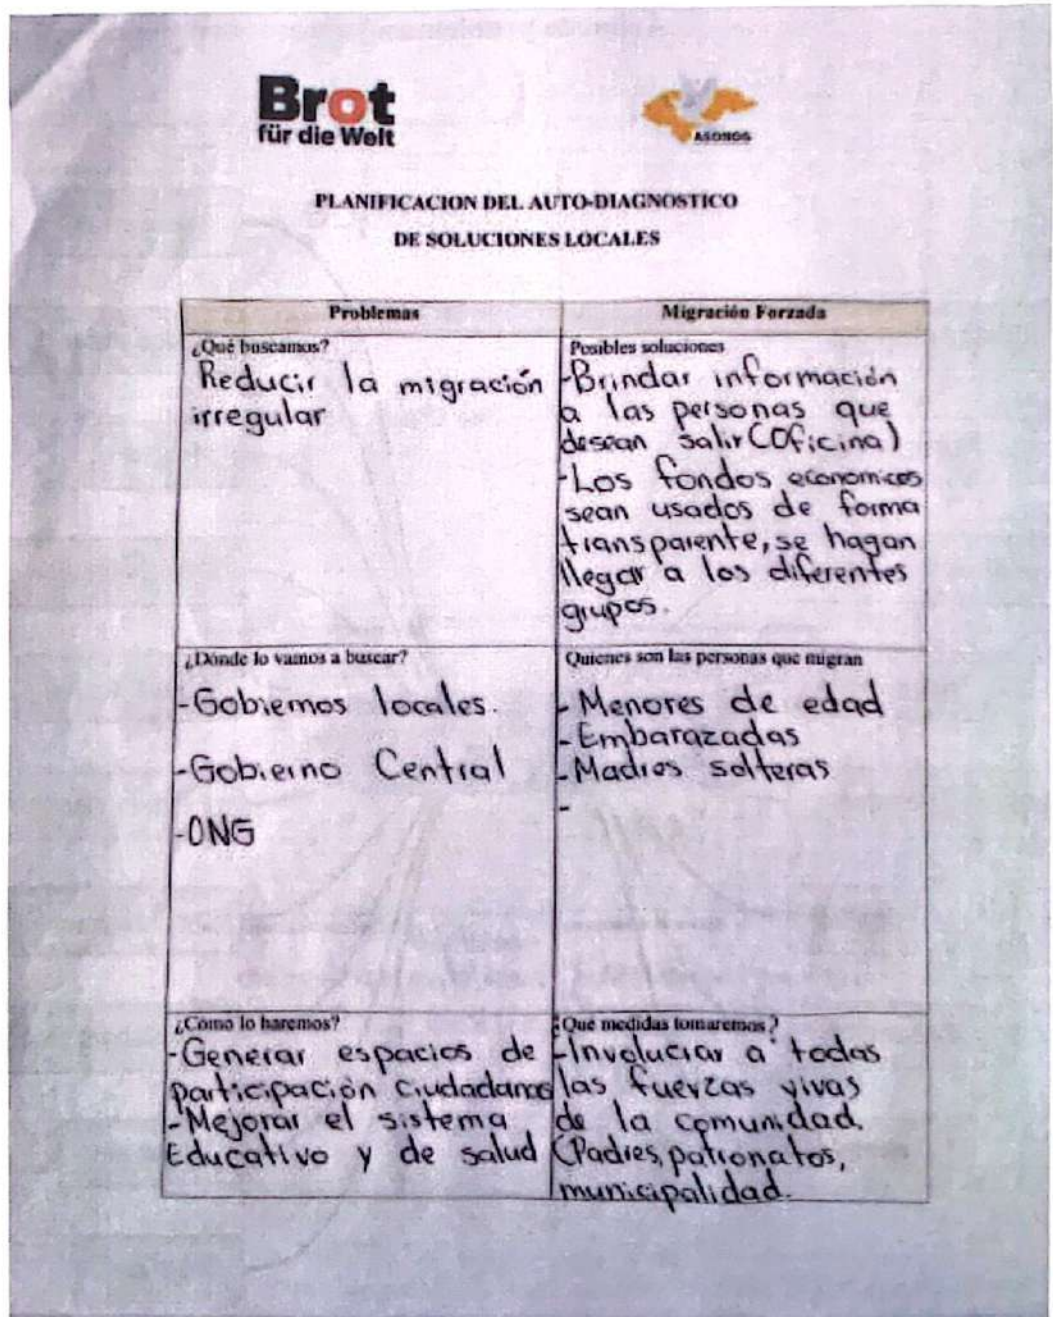 Brot
für die Welt
ASONOG
PLANIFICACION DEL AUTO-DIAGNOSTICO
DE SOLUCIONES LOCALES
Problemas
Migración Forzada
¿Qué buscamos?
Reducir la migración
irregular
Posibles soluciones
-Brindar información
a las personas que
desean salir (Oficina)
-Los fondos economicos
sean usados de forma
transparente, se hagan
llegar a los diferentes
grupos.
¿Dónde lo vamos a buscar?
-Gobiernos locales.
-Gobierno Central
-ONG
Quienes son las personas que migran
- Menores de edad
- Embarazadas
- Madres solteras
-
¿Cómo lo haremos?
-Generar espacios de
participación ciudadanos
-Mejorar el sistema
Educativo y de salud
¿Qué medidas tomaremos?
-Involucrar a todas
las fuerzas vivas
de la comunidad.
(Padres, patronatos,
municipalidad.